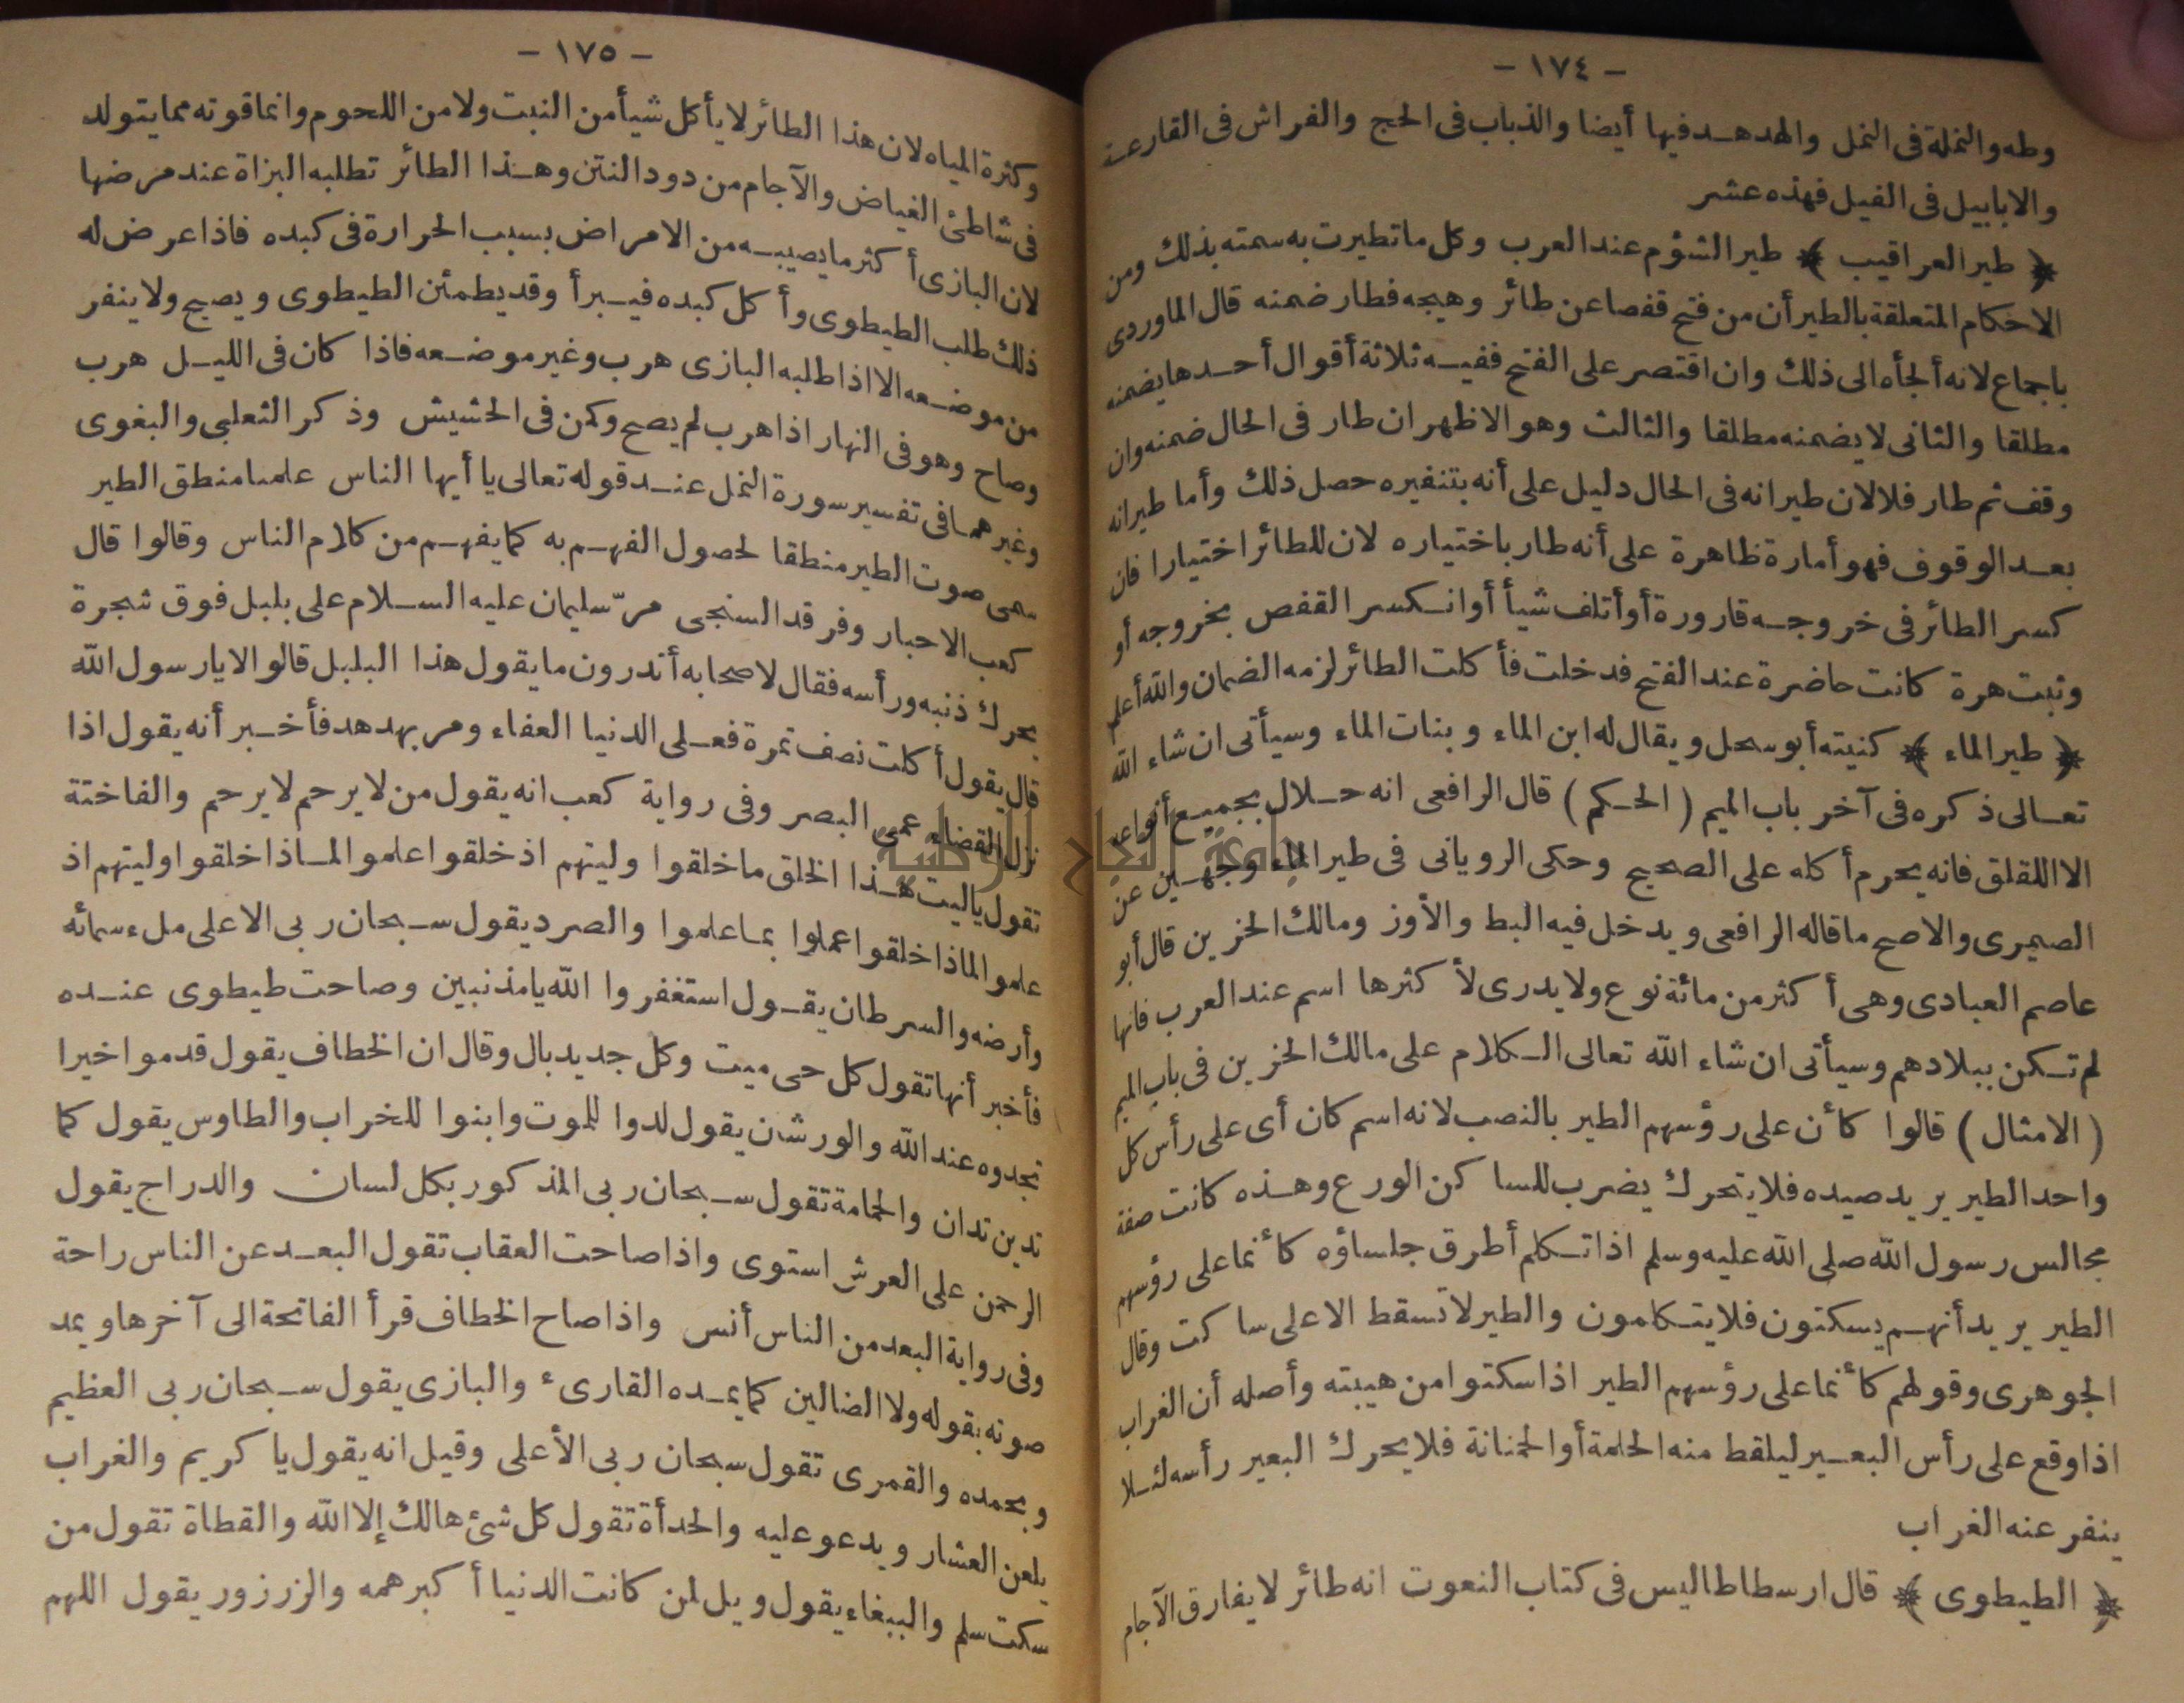 - ١٧٤ -
وطه والنملة فى النمل والهدهد فيها أيضا والذباب فى الحج والفراش فى القارعة
والابابيل فى الفيل فهذه عشر
﴿ طير العراقيب ﴾ طير الشؤم عند العرب وكل ما تطيرت به سمته بذلك ومن
الاحكام المتعلقة بالطير أن من فتح قفصا عن طائر وهيجه فطار ضمنه قال الماوردى
باجماع لانه ألجأه الى ذلك وان اقتصر على الفتح ففيه ثلاثة أقوال أحدها يضمنه
مطلقا والثانى لا يضمنه مطلقا والثالث وهو الاظهر ان طار فى الحال ضمنه وان
وقف ثم طار فلا لان طيرانه فى الحال دليل على أنه بتنفيره حصل ذلك وأما طيرانه
بعد الوقوف فهو أمارة ظاهرة على أنه طار باختياره لان للطائر اختيارا فان
كسر الطائر فى خروجه قارورة أو أتلف شيأ أو انكسر القفص بخروجه أو
وثبت هرة كانت حاضرة عند الفتح فدخلت فأكلت الطائر لزمه الضمان والله أعلم
﴿ طير الماء ﴾ كنيته أبو سحل ويقال له ابن الماء وبنات الماء وسيأتى ان شاء الله
تعالى ذكره فى آخر باب الميم ( الحكم ) قال الرافعى انه حلال بجميع أنواعه
الا اللقلق فانه يحرم أكله على الصحيح وحكى الرويانى فى طير الماء وجهين عن
الصيمرى والاصح ما قاله الرافعى ويدخل فيه البط والأوز ومالك الحزين قال أبو
عاصم العبادى وهى أكثر من مائة نوع ولا يدرى لأكثرها اسم عند العرب فانها
لم تكن ببلادهم وسيأتى ان شاء الله تعالى الكلام على مالك الحزين فى باب الميم
( الامثال ) قالوا كأن على رؤسهم الطير بالنصب لانه اسم كان أى على رأس كل
واحد الطير يريد صيده فلا يتحرك يضرب للساكن الورع وهذه كانت صفة
مجالس رسول الله صلى الله عليه وسلم اذا تكلم أطرق جلساؤه كأنما على رؤسهم
الطير يريد أنهم يسكتون فلا يتكامون والطير لا تسقط الا على ساكت وقال
الجوهرى وقولهم كأنما على رؤسهم الطير اذا سكتوا من هيبته وأصله أن الغراب
اذا وقع على رأس البعير ليلقط منه الحلمة أو الحمنانة فلا يحرك البعير رأسه لئلا
ينفر عنه الغراب
﴿ الطيطوى ﴾ قال ارسطاطاليس فى كتاب النعوت انه طائر لا يفارق الآجام
- ١٧٥ -
وكثرة المياه لان هذا الطائر لا يأكل شيأ من النبت ولا من اللحوم وانما قوته مما يتولد
فى شاطئ الغياض والآجام من دود النتن وهذا الطائر تطلبه البزاة عند مرضها
لان البازى أكثر ما يصيبه من الامراض بسبب الحرارة فى كبده فاذا عرض له
ذلك طلب الطيطوى وأكل كبده فيبرأ وقد يطمئن الطيطوى ويصيح ولا ينفر
من موضعه الا اذا طلبه البازى هرب وغير موضعه فاذا كان فى الليل هرب
وصاح وهو فى النهار اذا هرب لم يصح وكمن فى الحشيش وذكر الثعلبى والبغوى
وغيرهما فى تفسير سورة النمل عند قوله تعالى يا أيها الناس علمنا منطق الطير
سمى صوت الطير منطقا لحصول الفهم به كما يفهم من كلام الناس وقالوا قال
كعب الاحبار وفرقد السنجى مرّ سليمان عليه السلام على بلبل فوق شجرة
يحرك ذنبه ورأسه فقال لاصحابه أتدرون ما يقول هذا البلبل قالوا لا يا رسول الله
قال يقول أكلت نصف تمرة فعلى الدنيا العفاء ومر بهدهد فأخبر أنه يقول اذا
نزل القضاء عمى البصر وفى رواية كعب انه يقول من لا يرحم لا يرحم والفاختة
تقول ياليت هذا الخلق ما خلقوا وليتهم اذ خلقوا علموا لماذا خلقوا وليتهم اذ
علموا لماذا خلقوا عملوا بما علموا والصرد يقول سبحان ربى الاعلى ملء سمائه
وأرضه والسرطان يقول استغفروا الله يا مذنبين وصاحت طيطوى عنده
فأخبر أنها تقول كل حى ميت وكل جديد بال وقال ان الخطاف يقول قدموا خيرا
تجدوه عند الله والورشان يقول لدوا للموت وابنوا للخراب والطاوس يقول كما
تدين تدان والحمامة تقول سبحان ربى المذكور بكل لسان والدراج يقول
الرحمن على العرش استوى واذا صاحت العقاب تقول البعد عن الناس راحة
وفى رواية البعد من الناس أنس واذا صاح الخطاف قرأ الفاتحة الى آخرها ويمد
صوته بقوله ولا الضالين كما يمده القارىء والبازى يقول سبحان ربى العظيم
وبحمده والقمرى تقول سبحان ربى الأعلى وقيل انه يقول يا كريم والغراب
يلعن العشار ويدعو عليه والحدأة تقول كل شئ هالك إلا الله والقطاة تقول من
سكت سلم والببغاء يقول ويل لمن كانت الدنيا أكبر همه والزرزور يقول اللهم
جامعة النجاح الوطنية